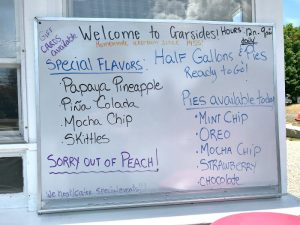 GIFT CARDS available
Welcome to Garsides!
HOURS 12n-9pm daily
Homemade icecream since 1955!
Special Flavors:
Papaya Pineapple
Piña Colada
Mocha Chip
Skittles
Sorry out of Peach!
We host/cater special events!!
Half Gallons & Pies
Ready to Go!
Pies available today
• Mint Chip
• Oreo
• Mocha Chip
• Strawberry
• Chocolate